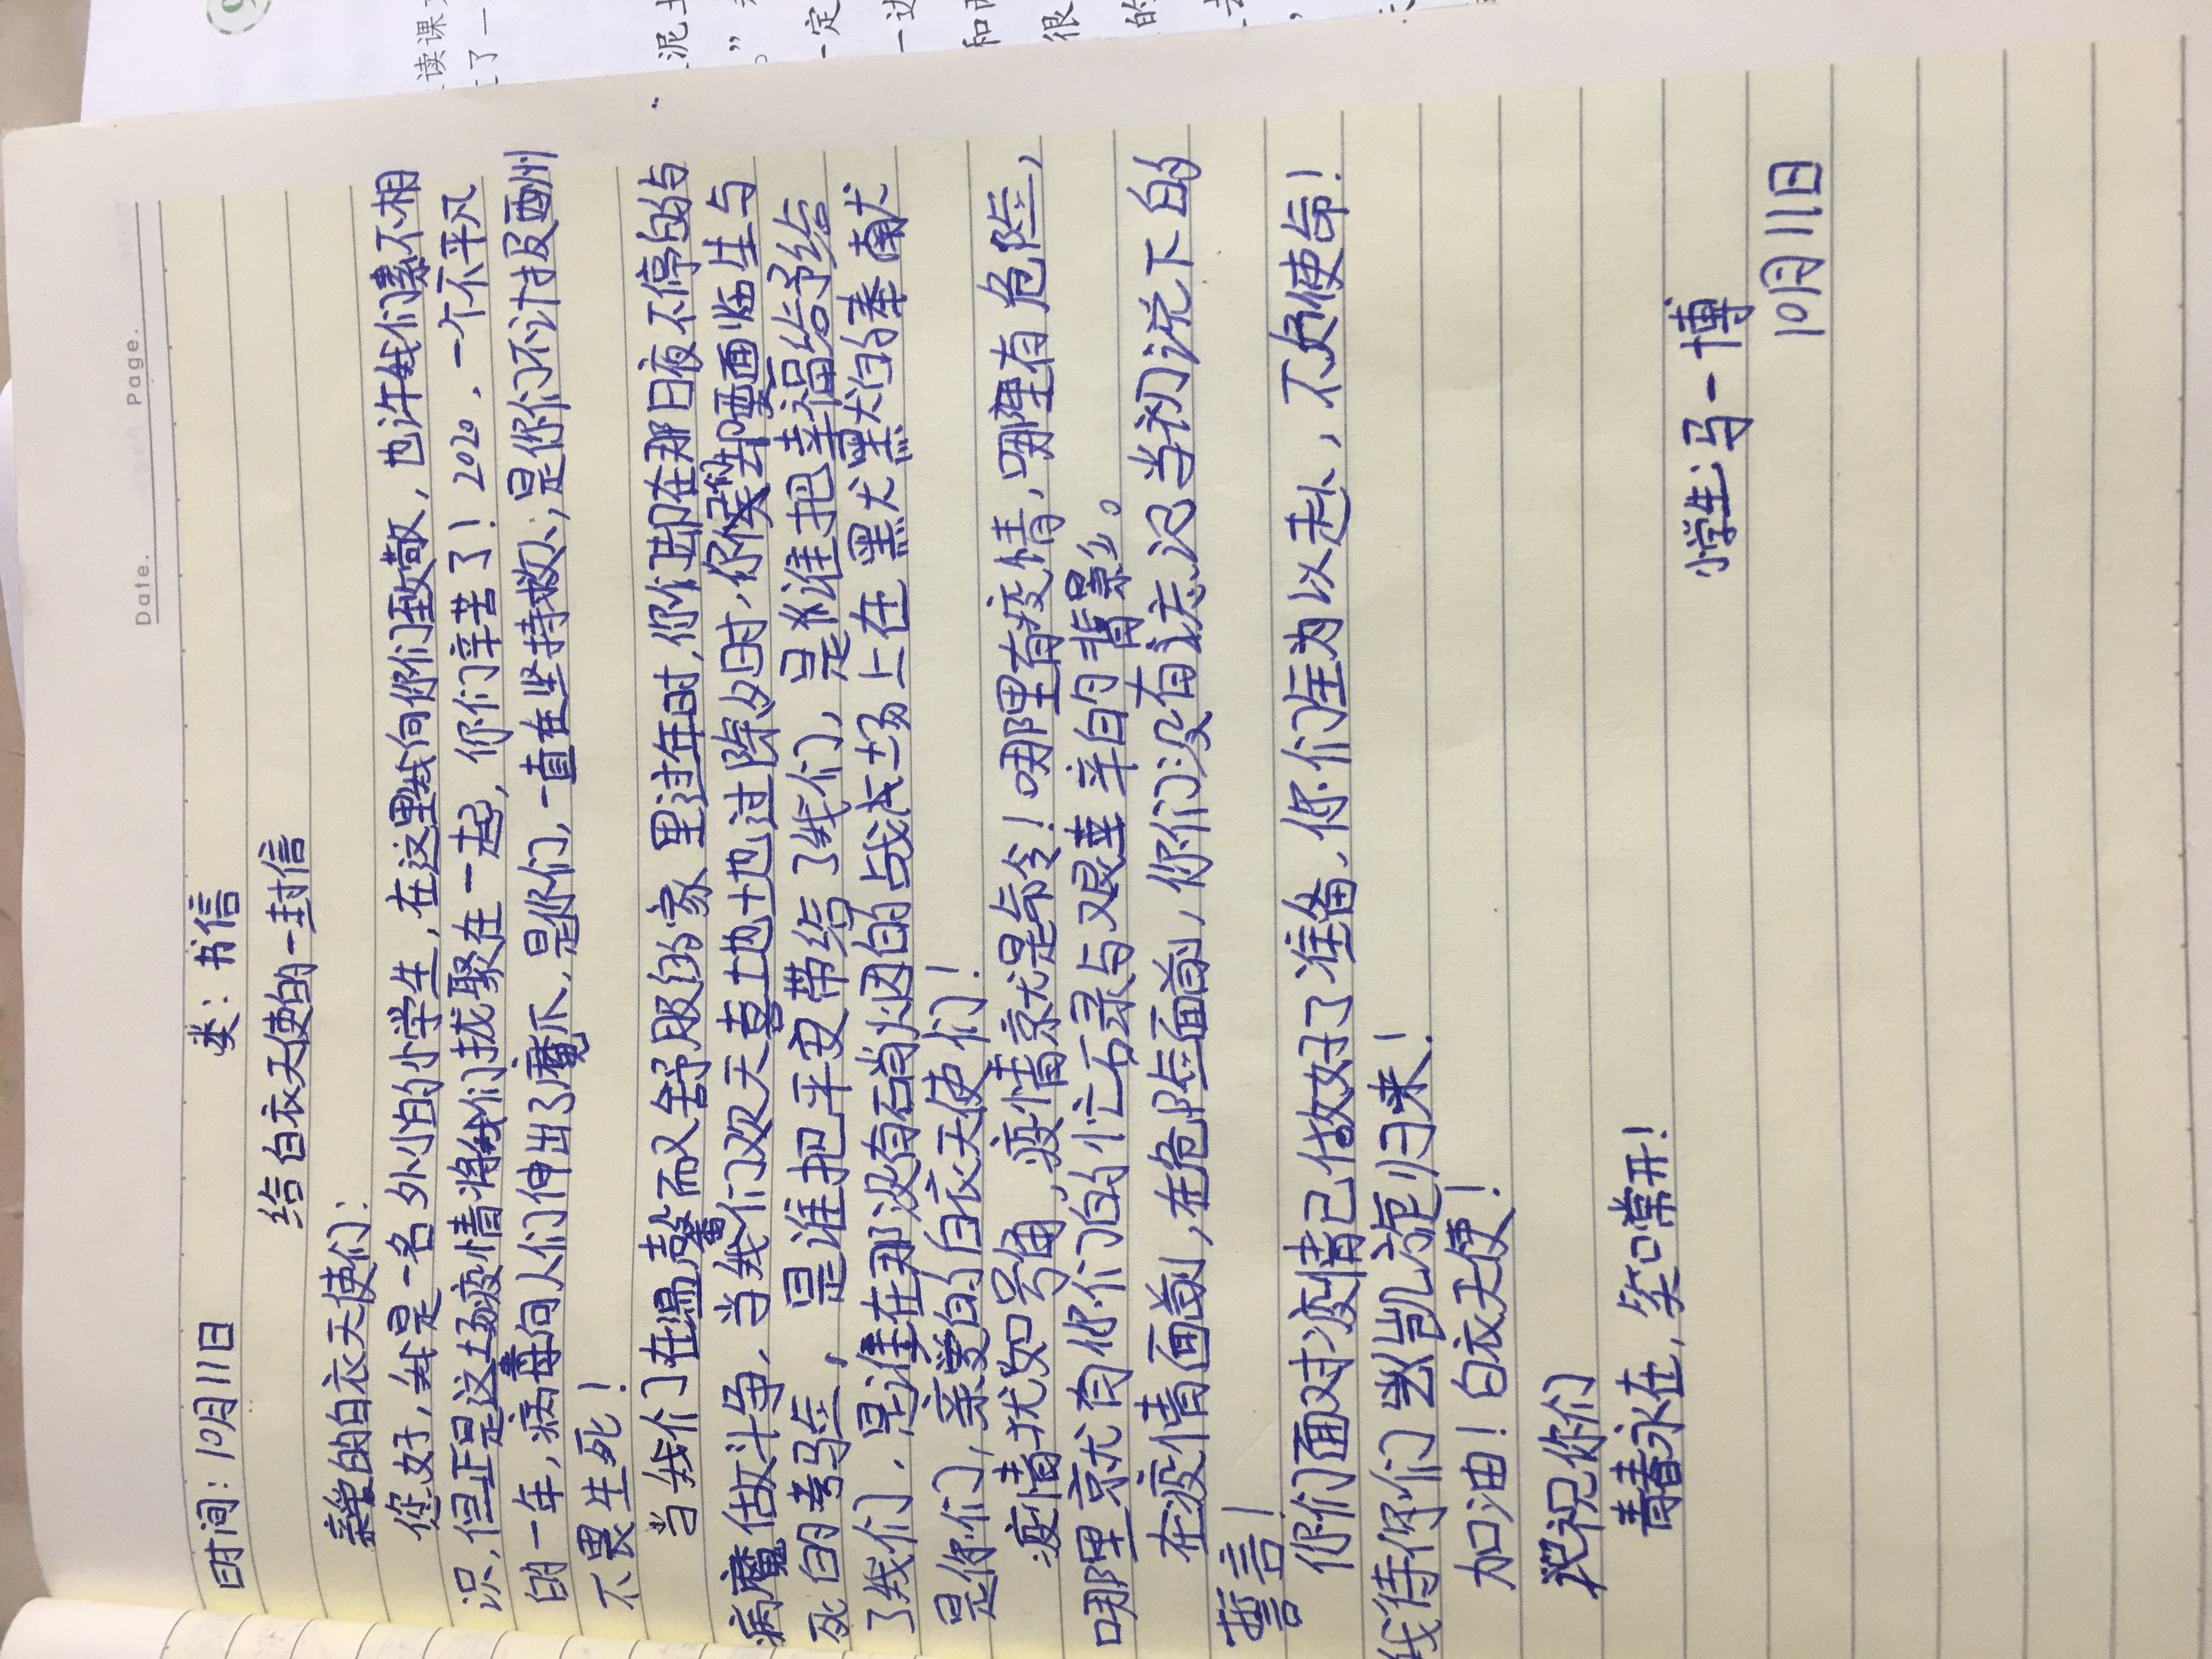 Date.
Page.
时间：10月11日 类：书信
给白衣天使的一封信
亲爱的白衣天使们：
您好，我是一名外小的小学生，在这里我向你们致敬，也许我们素不相
识，但正是这场疫情将我们拢聚在一起，你们辛苦了！2020，一个不平凡
的一年，病毒向人们伸出了魔爪，是你们，一直在坚持救人；是你们不计报酬
不畏生死！
当我们在温馨而又舒服的家里过年时，你们却在那日夜不停的与
病魔做斗争，当我们欢天喜地地过除夕时，你们却要面临生与
死的考验，是谁把平安带给了我们，是谁把幸福给予给
了我们，是谁在那没有硝烟的战场上在默默的奉献
是你们，亲爱的白衣天使们！
疫情犹如号角，疫情就是命令！哪里有疫情，哪里有危险，
哪里就有你们的忙碌与艰辛的背影。
在疫情面前，在危险面前，你们没有忘记当初说下的
誓言！
你们面对疫情已做好了准备，你们全力以赴，不负使命！
我待你们凯旋归来！
加油！白衣天使！
祝你们
青春永在，笑口常开！
小学生：马一博
10月11日
读课
了一
泥土
。”
一定
一边
和
很
的